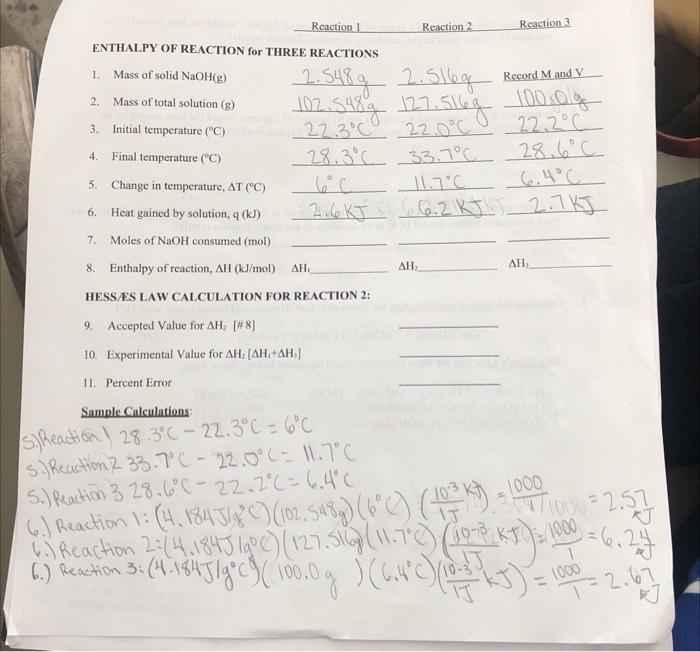 Reaction 1 Reaction 2 Reaction 3
ENTHALPY OF REACTION for THREE REACTIONS
1. Mass of solid NaOH(g) 2.548g 2.516g Record M and V
2. Mass of total solution (g) 102.548g 127.516g 100.0g
3. Initial temperature (°C) 22.3°C 22.0°C 22.2°C
4. Final temperature (°C) 28.3°C 33.7°C 28.6°C
5. Change in temperature, ΔT (°C) 6°C 11.7°C 6.4°C
6. Heat gained by solution, q (kJ) 2.6 KJ 6.2 KJ 2.7 KJ
7. Moles of NaOH consumed (mol)
8. Enthalpy of reaction, ΔH (kJ/mol) ΔH₁ ΔH₂ ΔH₃
HESSÆS LAW CALCULATION FOR REACTION 2:
9. Accepted Value for ΔH₂ [# 8]
10. Experimental Value for ΔH₂ [ΔH₁+ΔH₃]
11. Percent Error
Sample Calculations:
5.) Reaction 1 28.3°C - 22.3°C = 6°C
5.) Reaction 2 33.7°C - 22.0°C = 11.7°C
5.) Reaction 3 28.6°C - 22.2°C = 6.4°C
6.) Reaction 1: (4.184 J/g°C)(102.548g)(6°C) (10⁻³ KJ / 1J) = 1000 / 1 = 2.57 KJ
6.) Reaction 2: (4.184 J/g°C)(127.516g)(11.7°C) (10⁻³ KJ / 1J) = 1000 / 1 = 6.24 KJ
6.) Reaction 3: (4.184 J/g°C)(100.0g)(6.4°C)(10⁻³ KJ / 1J) = 1000 / 1 = 2.67 KJ